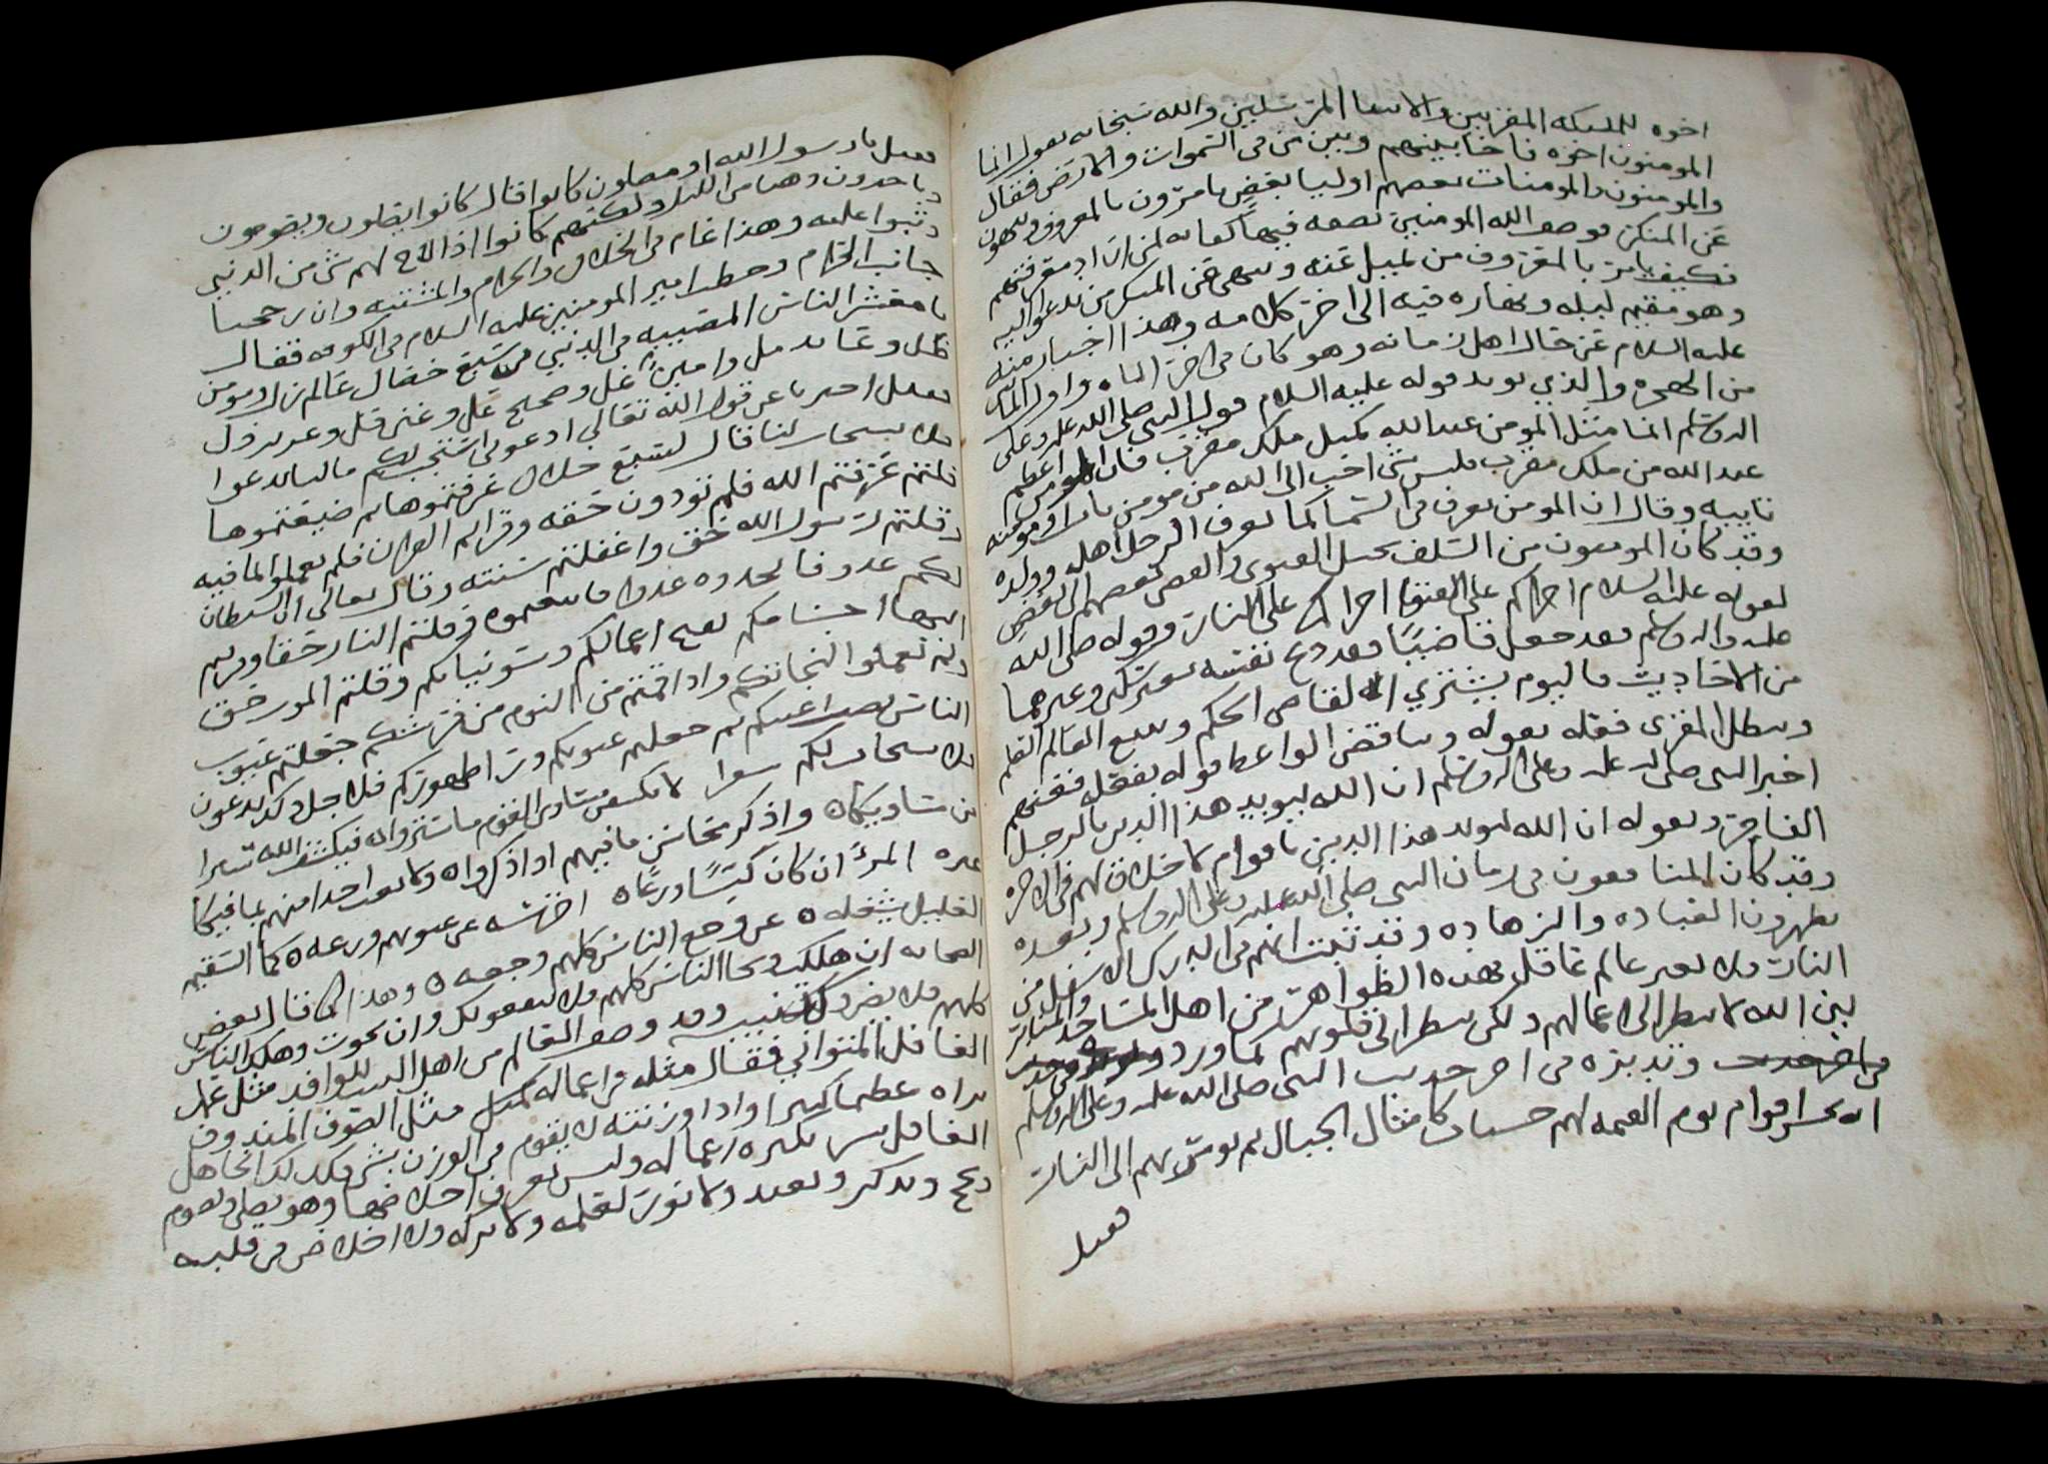 اخوه للمليكه المقربين والانبيا المرسلين والله سبحانه يقول انما
المومنون اخوه فاخا بينهم وبين من في السموات والارض فقال
والمومنون والمومنات بعضهم اوليا بعض يامرون بالمعروف وينهون
عن المنكر فوصف الله المومنين بصفه فيها كفايه لمن اراد معرفتهم
فكيف يامر بالمعروف من يميل عنه وينهى عن المنكر من يدعو اليه
وهو مقيم ليله ونهاره فيه الى اخر كلامه وهذا اخبار منه
عليه السلام عن حال اهل زمانه وهو كان في اخر المايه واول المايه
من الهجره والذي يويد قوله عليه السلام قول النبي صلى الله عليه وعلى
اله وسلم انما مثل المومن عند الله كمثل ملك مقرب فان المومن اعظم
عند الله من ملك مقرب فليس شي احب الى الله من مومن تايب او مومنه
تايبه وقال ان المومن يعرف في السما كما يعرف الرجل اهله وولده
وقد كان المومنون من السلف يحيل الفتوى والقضى بعضهم الى بعض
لقوله عليه السلام اجراكم على الفتوا اجراكم على النار وقوله صلى الله
عليه واله وسلم من جعل قاضيا فقد ذبح نفسه بغير سكين وغيرهما
من الاحاديث فاليوم يشتري القاص الحكم ويبيع العالم العلم
ويبطل المقري فعله بقوله ويناقض الواعظ قوله بفعله ففيهم
اخبر النبي صلى الله عليه وعلى اله وسلم ان الله ليويد هذا الدين بالرجل
الفاجر وبقوله ان الله ليويد هذا الدين باقوام لا خلاق لهم في الاخره
وقد كان المنافقون في زمان النبي صلى الله عليه وعلى اله وسلم وبعده
يظهرون العباده والزهاده وقد ثبت انهم في الدرك الاسفل من
النار فلا يغير عالم غافل بهذه الظواهر من اهل المساجد والمنابر
لان الله لا ينظر الى اعمالهم ولكن ينظر الى قلوبهم كما ورد
وتدبره في اخر حديث النبي صلى الله عليه وعلى اله وسلم
انه يحشر اقوام يوم القيمه لهم حسنات كامثال الجبال ثم يومر بهم الى النار
فقيل
فقيل يا رسول الله او مصلون كانوا قال كانوا يصلون ويصومون
وياخذون وهنا من الليل ولكنهم كانوا اذا لاح لهم شي من الدنيى
وثبوا عليه وهذا عام في الحلال والحرام والمشتبه وان رجحنا
جانب الحرام وخطب امير المومنين عليه السلام في الكوفه فقال
يا معشر الناس المصيبه في الدنيى من سبع خصال عالم زل ومومن
ظل وعابد مل وامين غل وصحيح عل وغني قل وعزيز ذل
فقيل اخبرنا عن قول الله تعالى ادعوني استجب لكم مالنا ندعوا
فلا يستجاب لنا قال لسبع خلال عرفتموها ثم ضيعتموها
قلتم عرفتم الله فلم تودون حقه وقراتم القران فلم تعملوا بما فيه
وقلتم رسول الله حق واغفلتم سنته وقال تعالى ان الشيطان
لكم عدو فاتخذوه عدوا فاتبعتموه وقلتم النار حقا وقربتم
اليها اجسامكم بقبيح اعمالكم وسو نياتكم وقلتم الموت حق
ولم تعملوا لنجاتكم واذا قمتم من النوم من فرشكم جعلتم عيوب
الناس نصب اعينكم ثم جعلتم عيوبكم ورا اظهوركم فلاجل ذلك تدعون
فلا يستجاب لكم
لا تكشفن مساوي القوم ما ستروا فيكشف الله سترا
من مساويكا واذكر محاسن ما فيهم اذا ذكروا ولا تعب احدا منهم بما فيكا
غيره المرء ان كان كيسا ورعا اخرسه عن عيوبهم ورعه كما السقيم
العليل يشغله عن وجع الناس كلهم وجعه وهذا كما قال بعض
الصحابه ان هلكت ونجا الناس كلهم فلا ينفعونك وان نجوت وهلك الناس
كلهم فلا يضروك وقد وصف العالم من اهل البيت
الغافل المتواني فقال مثله في اعماله كمثل مثل الصوف المندوف
يراه عظيما كثيرا واذا وزنته لا يقوم في الوزن بشي فكذلك الجاهل
الغافل يسر بكثره اعماله وليس يعرف اخلاصها وهو يصلي ويصوم
ويحج ويذكر ويعبد ولا نور لعلمه ولا بركه ولا اخلاص في قلبه